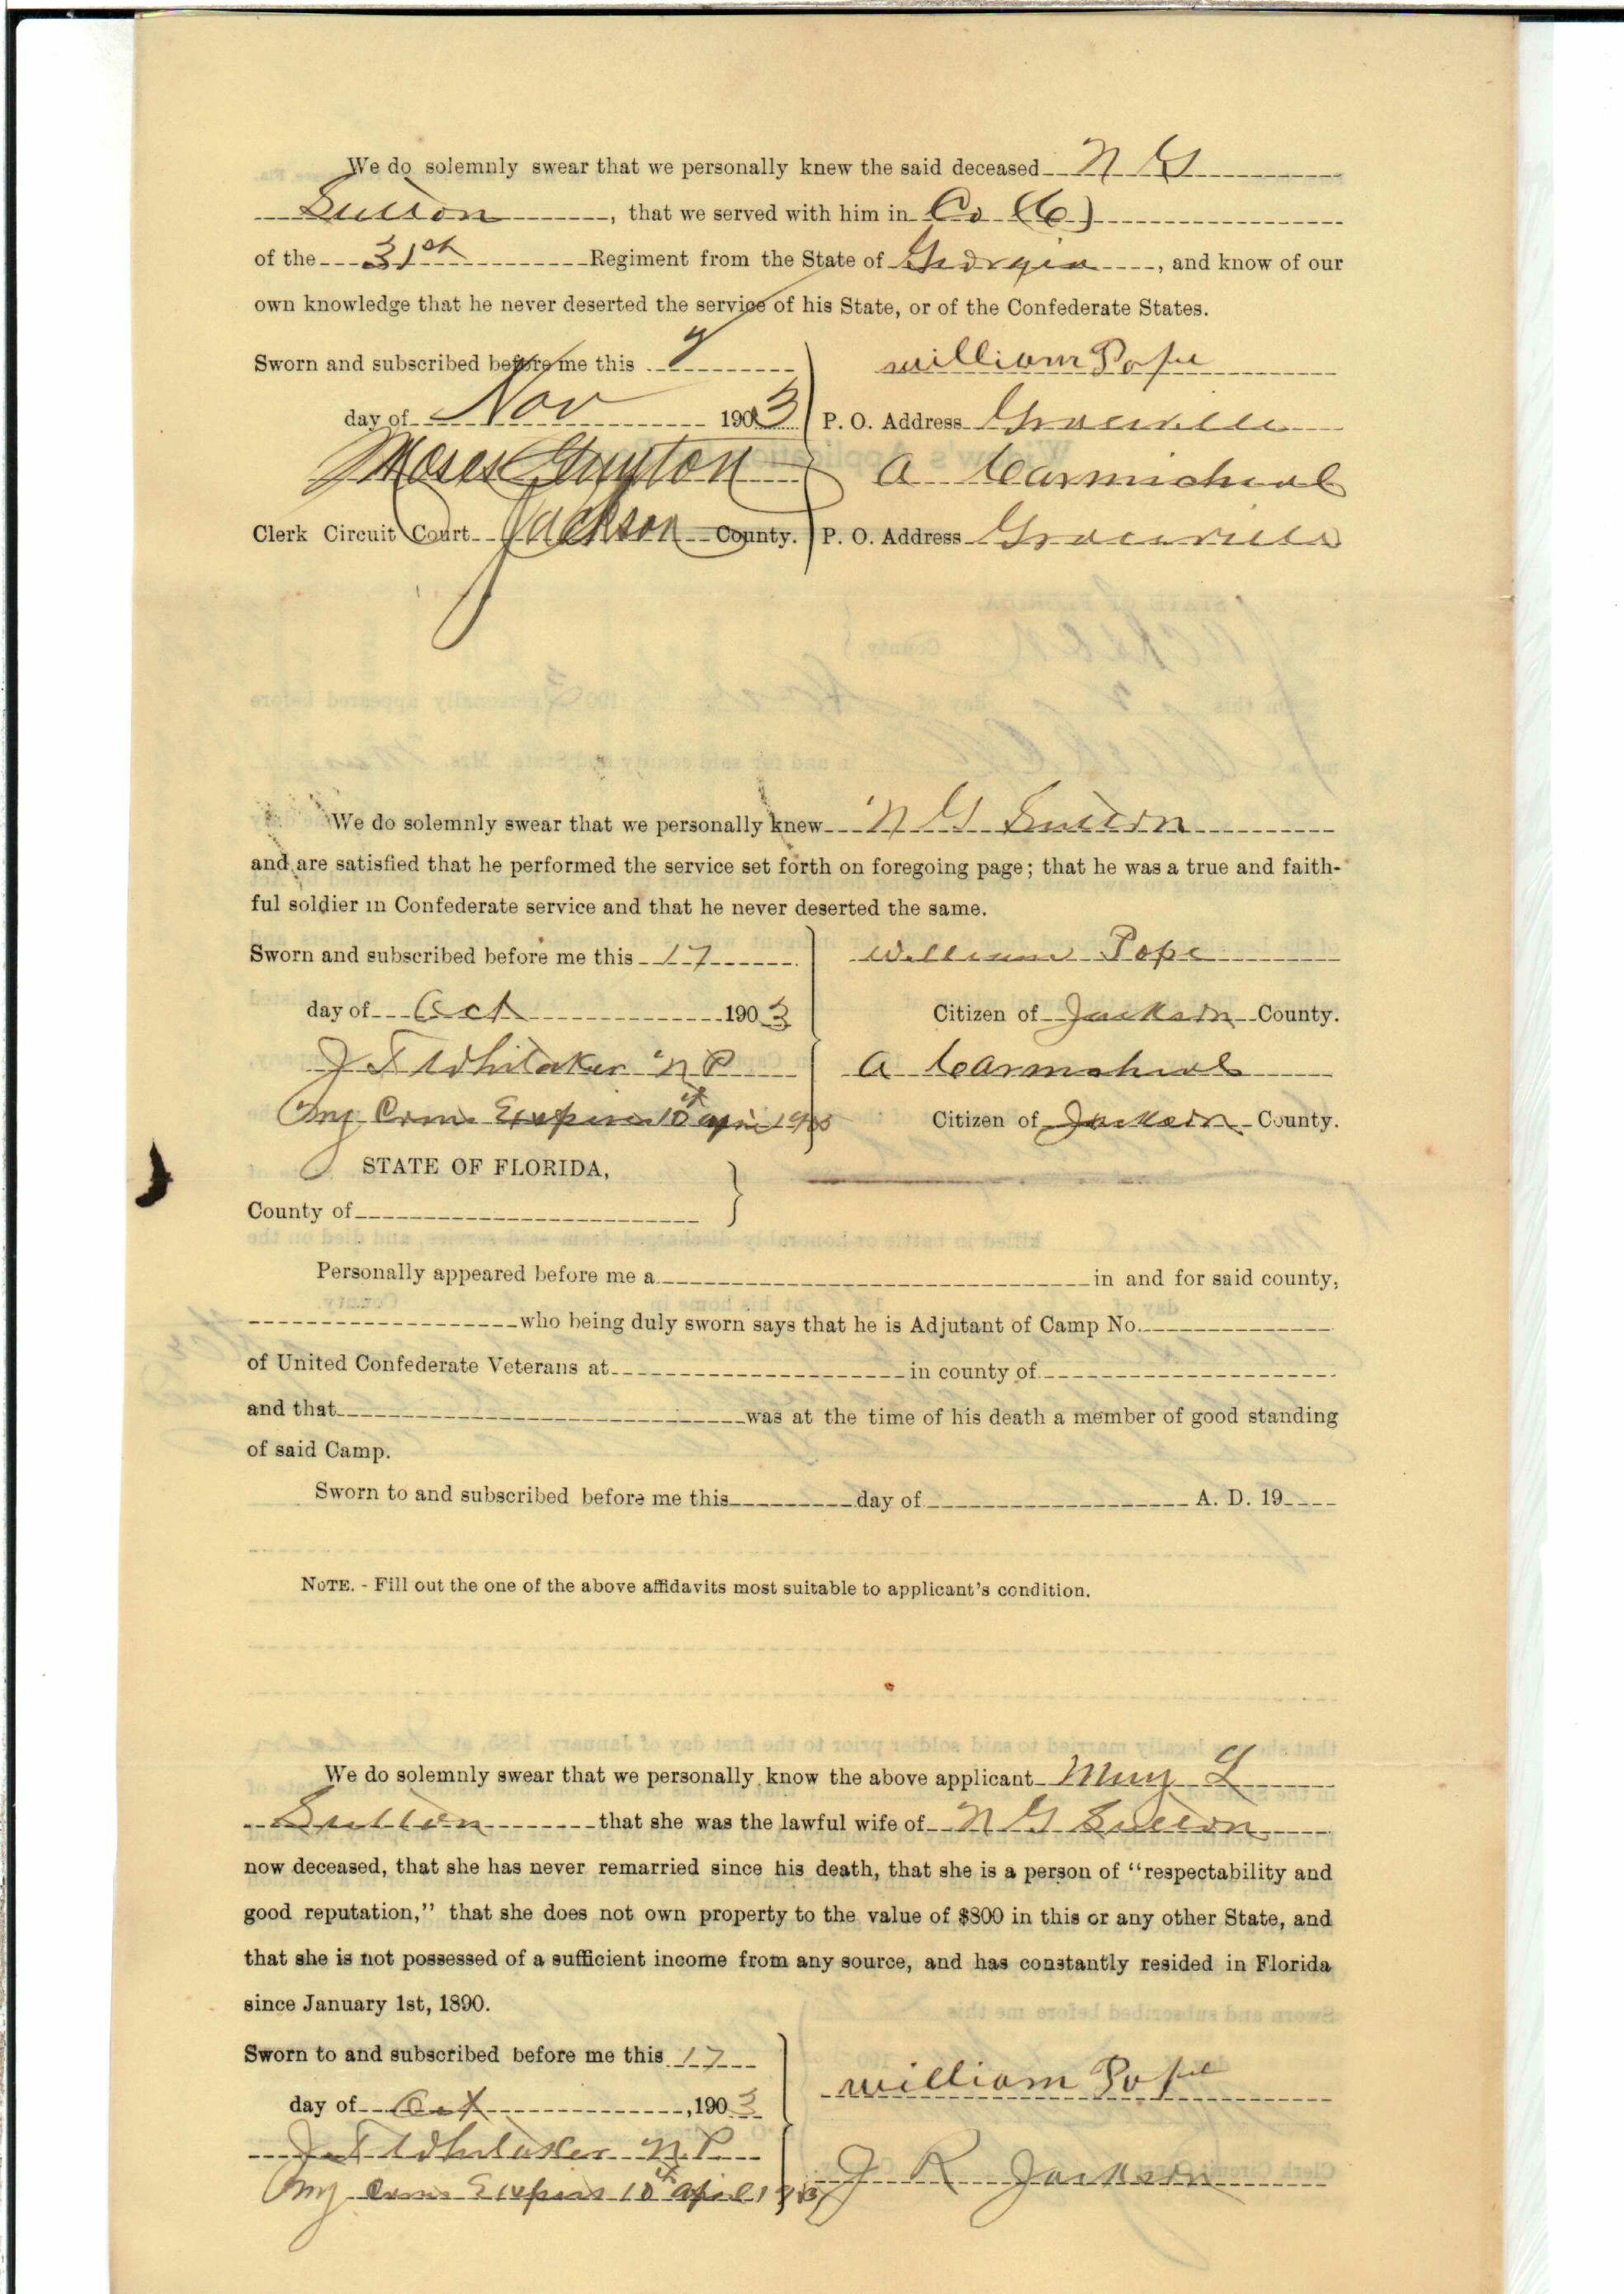 We do solemnly swear that we personally knew the said deceased N G
Sutton, that we served with him in Co
of the 31st Regiment from the State of Georgia, and know of our
own knowledge that he never deserted the service of his State, or of the Confederate States.
Sworn and subscribed before me this william Pope
day of Nov 1903 P. O. Address Graceville
Moses Guyton A Carmichael
Clerk Circuit Court Jackson County. P. O. Address Graceville
We do solemnly swear that we personally knew N G Sutton
and are satisfied that he performed the service set forth on foregoing page; that he was a true and faith-
ful soldier in Confederate service and that he never deserted the same.
Sworn and subscribed before me this 17 William Pope
day of Oct 1903 Citizen of Jackson County.
J T Whitaker N P A Carmichael
My Com Expires 10th Citizen of Jackson County.
STATE OF FLORIDA,
County of
Personally appeared before me a in and for said county,
who being duly sworn says that he is Adjutant of Camp No.
of United Confederate Veterans at in county of
and that was at the time of his death a member of good standing
of said Camp.
Sworn to and subscribed before me this day of A. D. 19
NOTE. - Fill out the one of the above affidavits most suitable to applicant's condition.
We do solemnly swear that we personally know the above applicant Mary L
Sutton that she was the lawful wife of N G Sutton
now deceased, that she has never remarried since his death, that she is a person of "respectability and
good reputation," that she does not own property to the value of $800 in this or any other State, and
that she is not possessed of a sufficient income from any source, and has constantly resided in Florida
since January 1st, 1890.
Sworn to and subscribed before me this 17
day of Oct, 1903 william Pope
J T Whitaker N.P.
My Com Expires 10th april J R Jackson